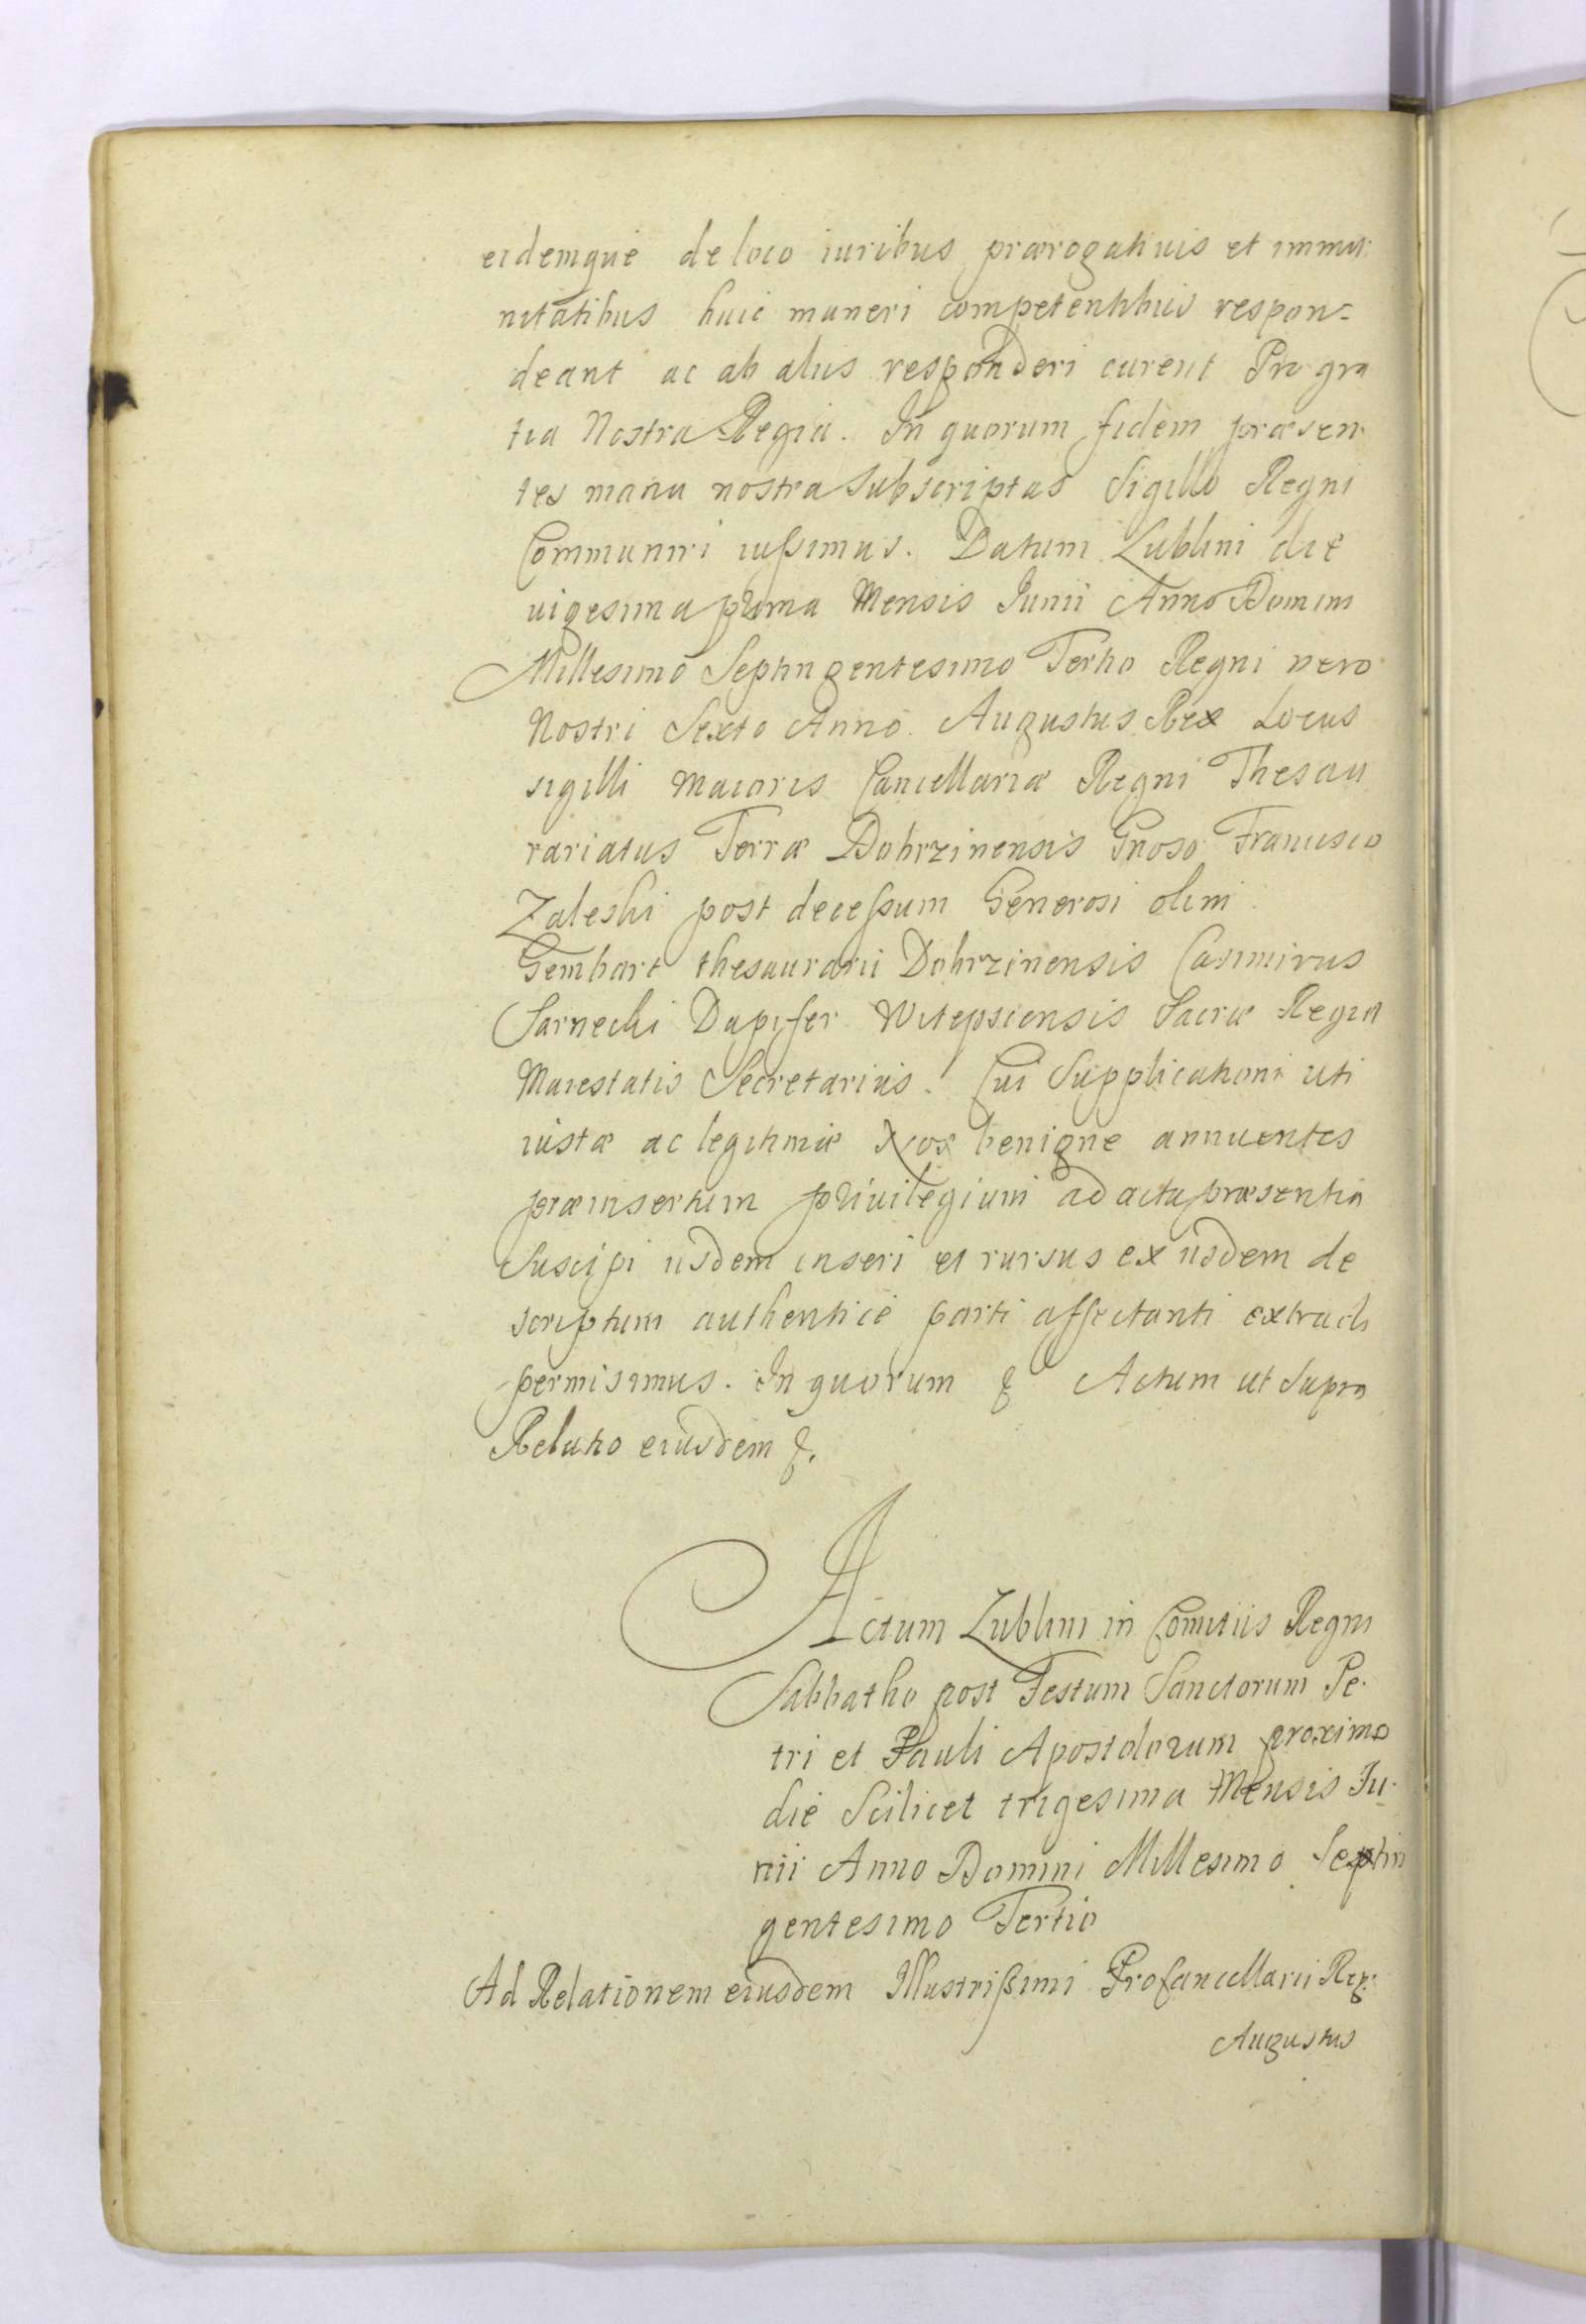 eidemque de loco iuribus prærogatiuis et immu
nitatibus huic muneri competentibus respon=
deant ac ab aliis responderi curent Pro gra
tia Nostra Regia. In quorum fidem præsen
tes manu nostra Subscriptas Sigillo Regni
Communiri iussimus. Datum Lublini die
uigesima prima Mensis Junii Anno Domini
Millesimo Septingentesimo Tertio Regni vero
Nostri Sexto Anno. Augustus Rex Locus
sigilli Maioris Cancellariæ Regni Thesau
rariatus Terræ Dobrzinensis Gnoso Francisco
Zaleski post decessum Generosi olim
Gembart thesaurarii Dobrzinensis Casimirus
Sarnecki Dapifer Witepscensis Sacræ Regia
Maiestatis Secretarius. Cui Supplicationi uti
iustæ ac legitimæ Nos benigne annuentes
præinsertum priuilegium ad acta præsentia
Suscipi iisdem inseri et rursus ex iisdem de
scriptum authentice parti affectanti extradi
permisimus. In quorum & Actum ut Supra
Relatio eiusdem &.
Actum Lublini in Comitiis Regni
Sabbatho post Festum Sanctorum Pe.
tri et Pauli Apostolorum proximo
die Scilicet trigesima Mensis Ju.
nii Anno Domini Millesimo Septin
gentesimo Tertio
Ad Relationem eiusdem Illustrissimi Procancellarii Reg.
Augustus